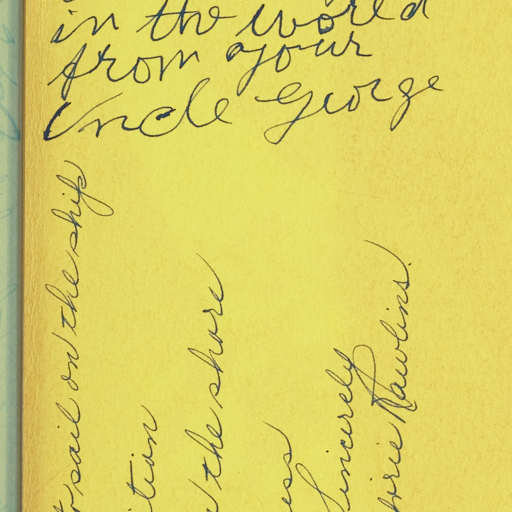 in the world
from your
Uncle George
sail on the ship
tion
the shore
ess
Sincerely
Rawlins.